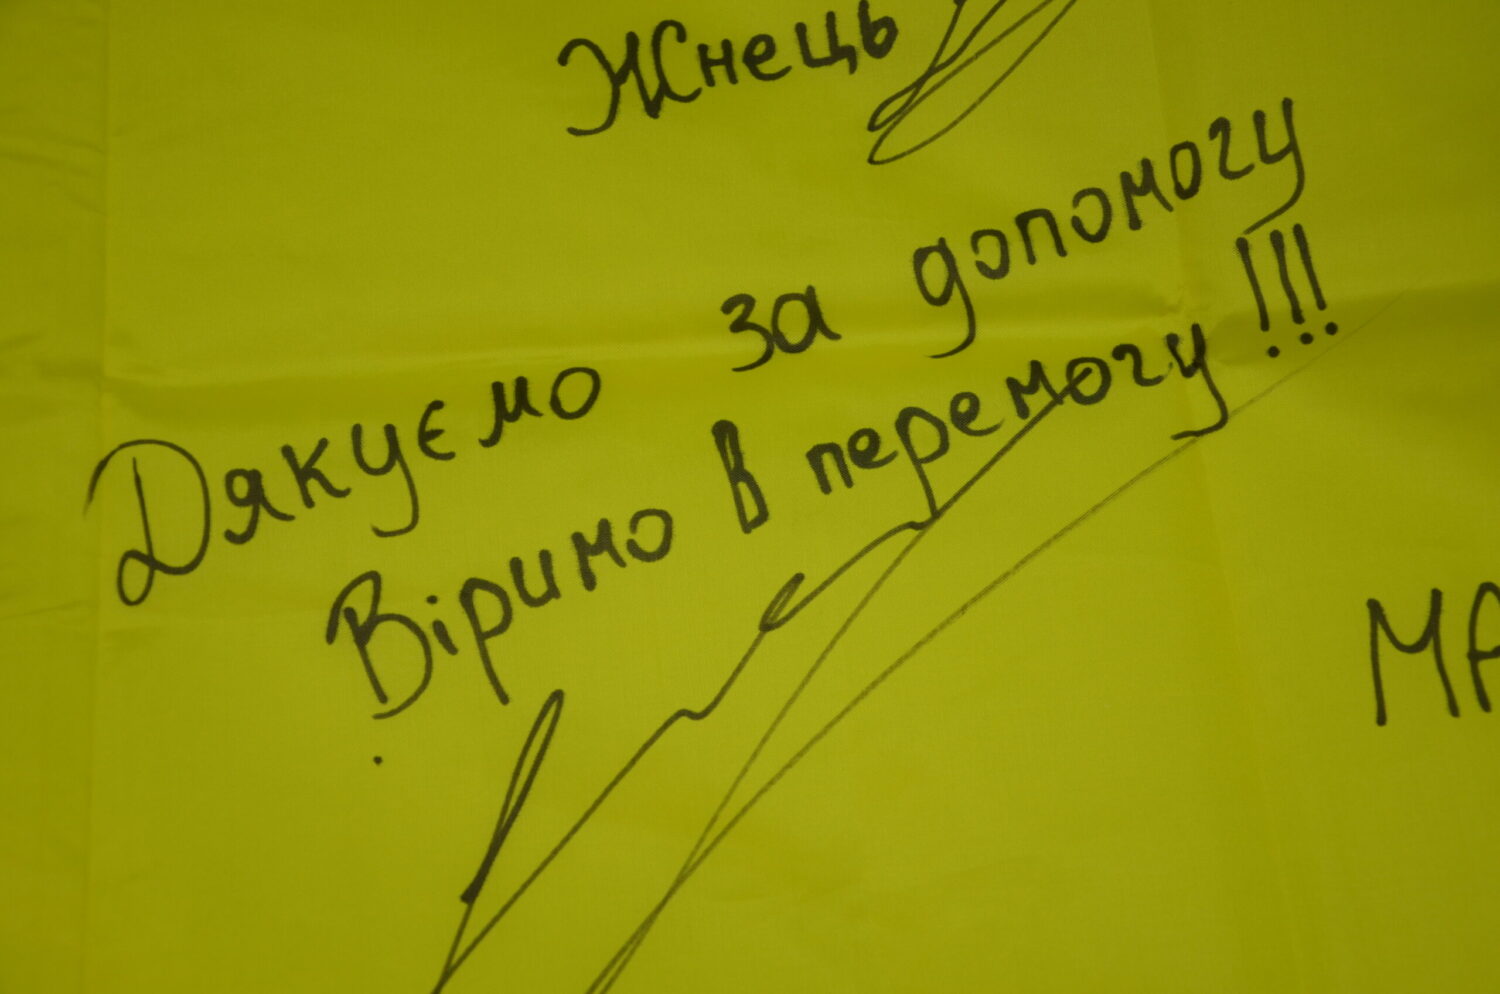 Жнець
Дякуємо за допомогу
Віримо в перемогу !!!
МА